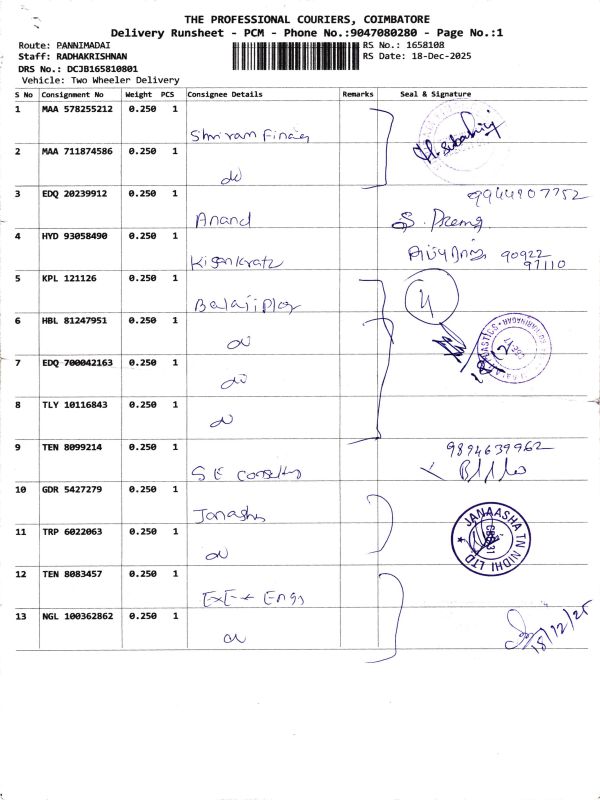 THE PROFESSIONAL COURIERS, COIMBATORE
Delivery Runsheet - PCM - Phone No.:9047080280 - Page No.:1
Route: PANNIMADAI
RS No.: 1658108
Staff: RADHAKRISHNAN
RS Date: 18-Dec-2025
DRS No.: DCJB165810801
Vehicle: Two Wheeler Delivery
S No Consignment No Weight PCS Consignee Details Remarks Seal & Signature
1 MAA 578255212 0.250 1 Shriram
2 MAA 711874586 0.250 1
3 EDQ 20239912 0.250 1 Anand 9944907752
4 HYD 93058490 0.250 1 90922 97110
5 KPL 121126 0.250 1 Balaji
6 HBL 81247951 0.250 1
7 EDQ 700042163 0.250 1
8 TLY 10116843 0.250 1
9 TEN 8099214 0.250 1 S E 9894639962
10 GDR 5427279 0.250 1
11 TRP 6022063 0.250 1 JANAASHA TN NIDHI LTD
12 TEN 8083457 0.250 1
13 NGL 100362862 0.250 1 18/12/25